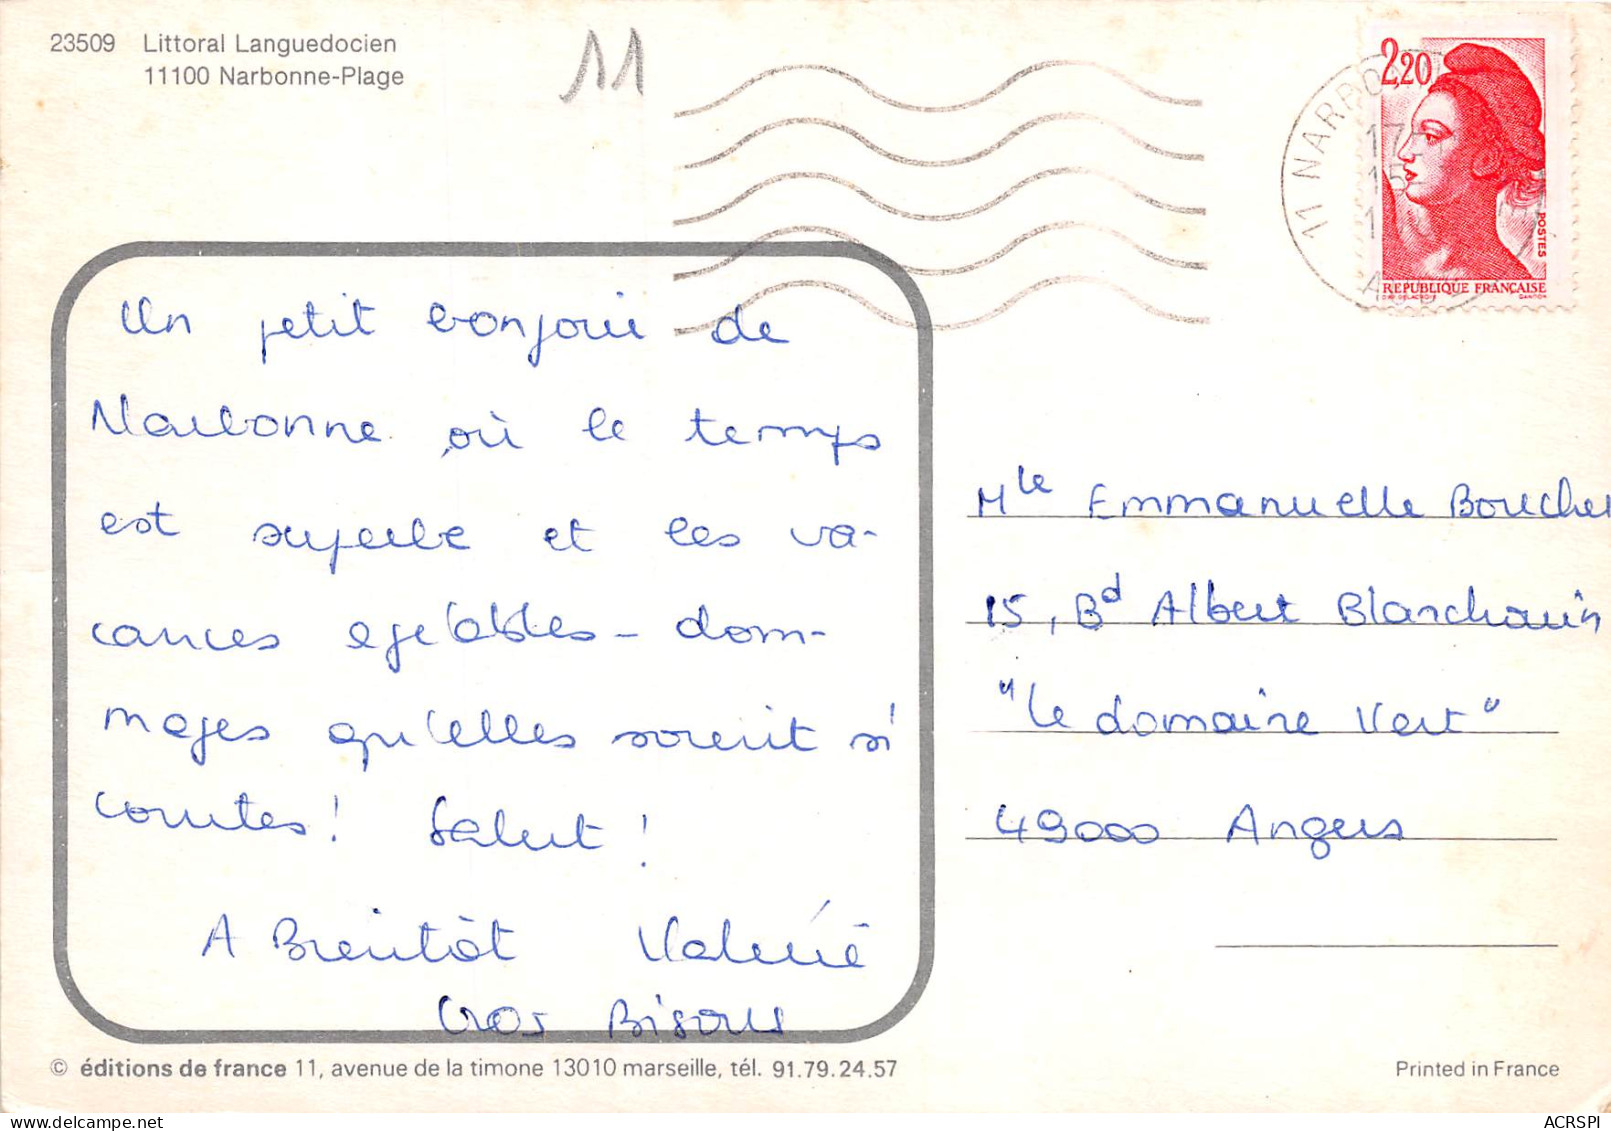 23509 Littoral Languedocien
11100 Narbonne-Plage
11
2,20
11 NARBO
17-
15
POSTES
REPUBLIQUE FRANÇAISE
D'AP. DELACROIX GANDON
Un petit bonjour de
Narbonne où le temps
est superbe et les va-
cances agréables - dom-
mages qu'elles soient si
courtes! Salut!
A Bientôt Valérie
Gros Bisous
Mlle Emmanuelle Boucher
15, Bd Albert Blanchouin
"Le domaine Vert"
49000 Angers
© éditions de france 11, avenue de la timone 13010 marseille, tél. 91.79.24.57
Printed in France
ACRSPI